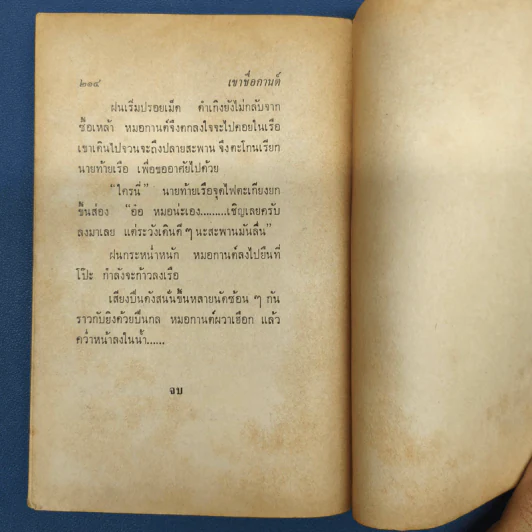 ๒๑๔ เขาชื่อกานต์
ฝนเริ่มปรอยเม็ด คำเกิงยังไม่กลับจาก
ซื้อเหล้า หมอกานต์จึงตกลงใจจะไปคอยในเรือ
เขาเดินไปจวนจะถึงปลายสะพาน จึงตะโกนเรียก
นายท้ายเรือ เพื่อขออาศัยไปด้วย
"ใครนี่" นายท้ายเรือจุดไฟตะเกียงยก
ขึ้นส่อง "อ๋อ หมอน่ะเอง.........เชิญเลยครับ
ลงมาเลย แต่ระวังเดินดี ๆ นะสะพานมันลื่น"
ฝนกระหน่ำหนัก หมอกานต์ลงไปยืนที่
โป๊ะ กำลังจะก้าวลงเรือ
เสียงปืนดังสนั่นขึ้นหลายนัดซ้อน ๆ กัน
ราวกับยิงด้วยปืนกล หมอกานต์ผวาเฮือก แล้ว
คว่ำหน้าลงในน้ำ......
จบ